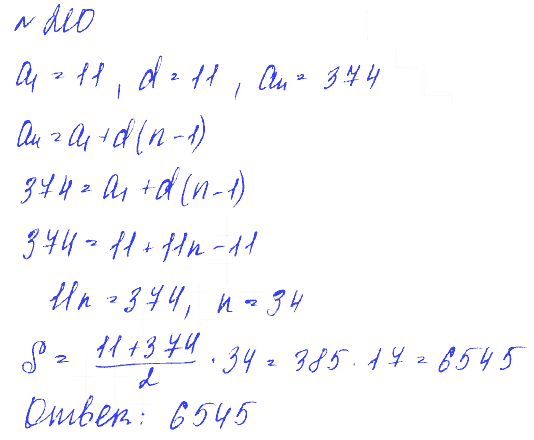 № 210
a₁ = 11, d = 11, aₙ = 374
aₙ = a₁ + d(n-1)
374 = a₁ + d(n-1)
374 = 11 + 11n - 11
11n = 374, n = 34
S = (11 + 374)/2 · 34 = 385 · 17 = 6545
Ответ: 6545